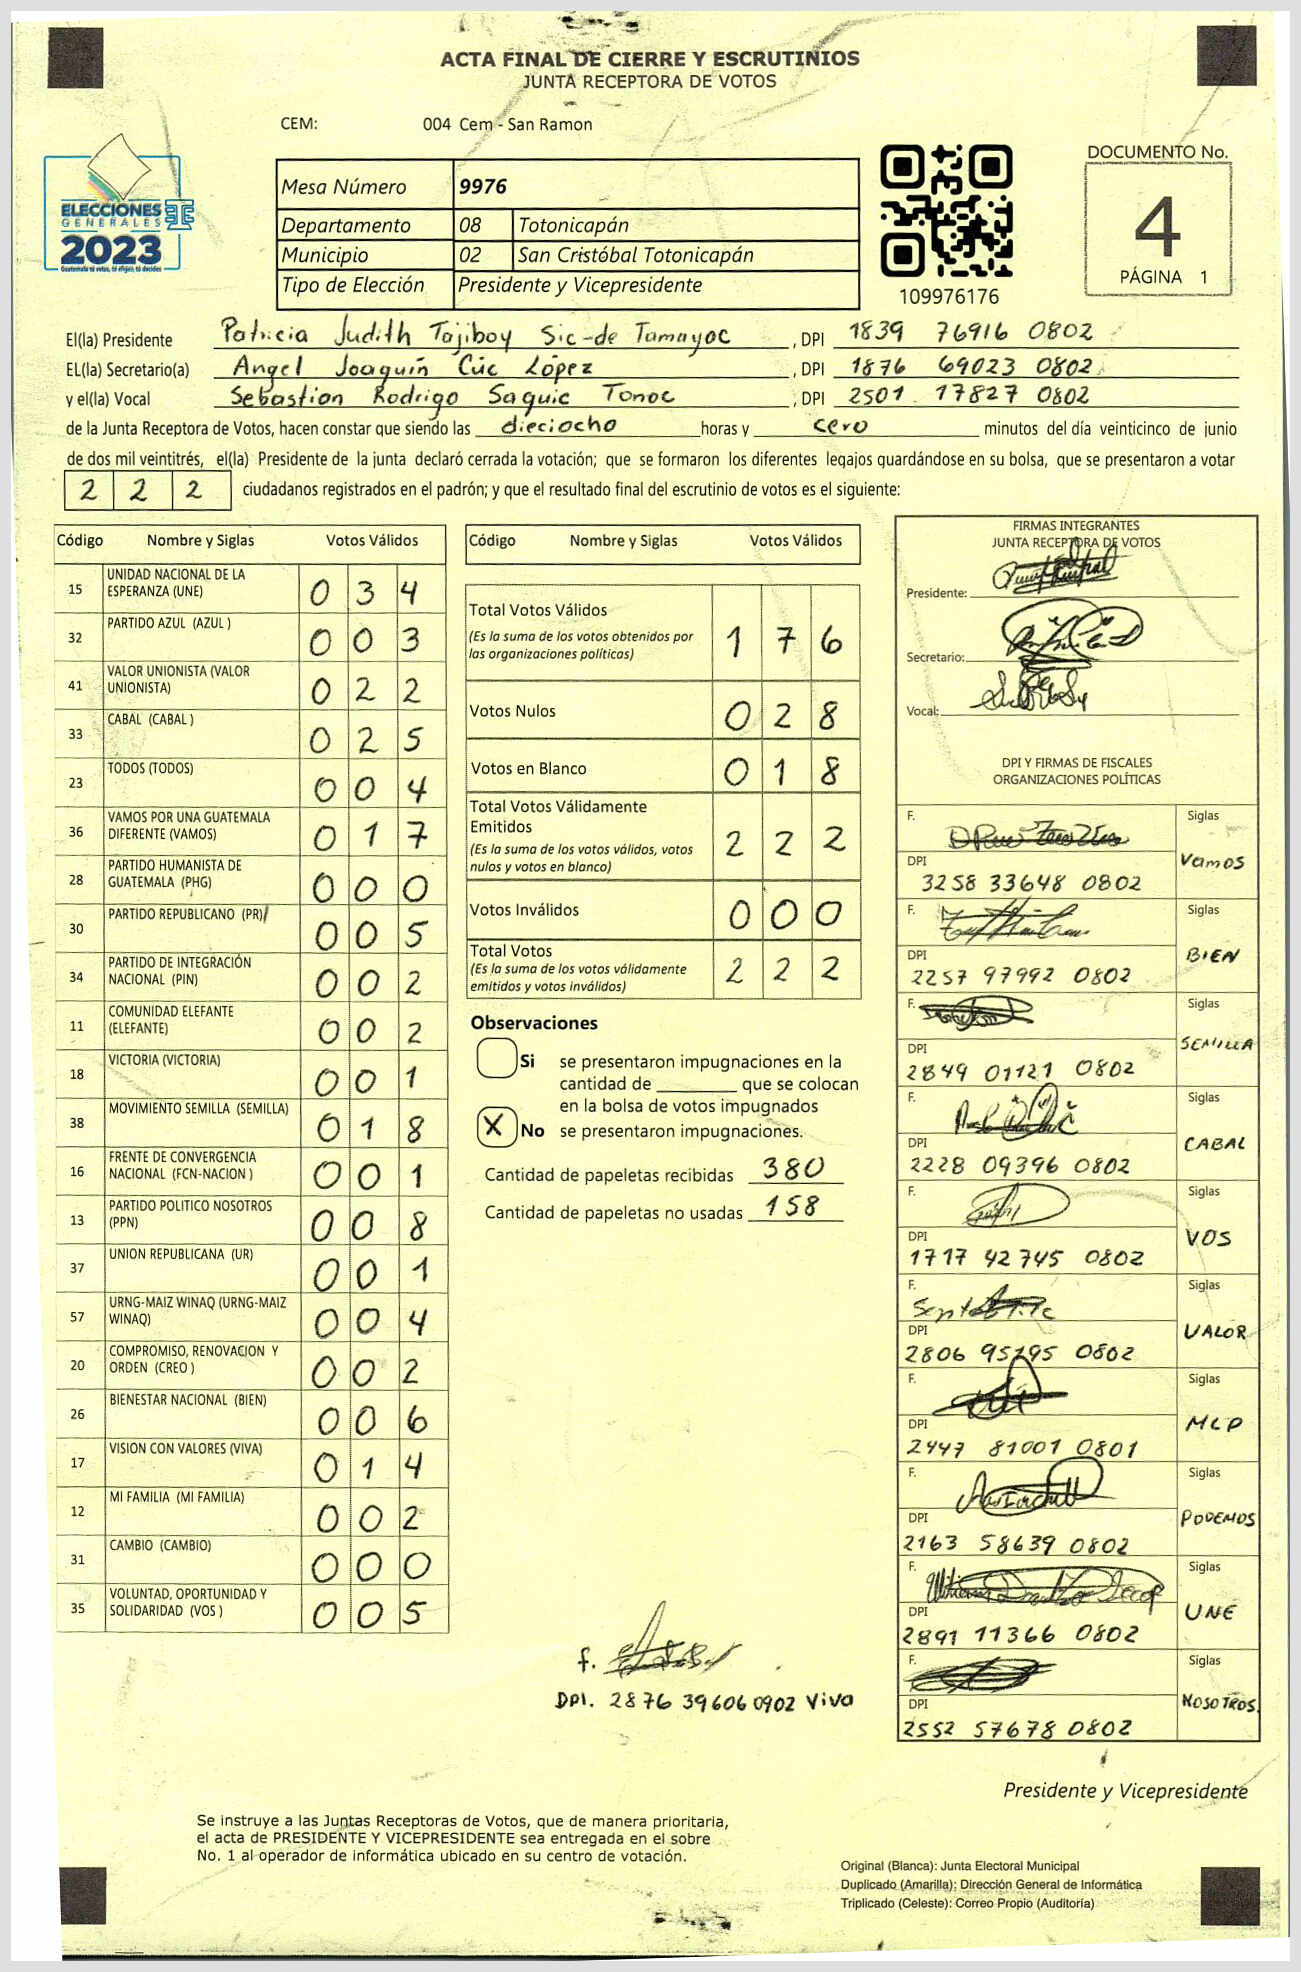 ACTA FINAL DE CIERRE Y ESCRUTINIOS
JUNTA RECEPTORA DE VOTOS
CEM: 004 Cem - San Ramon
ELECCIONES
GENERALES
2023
Guatemala tú votas, tú eliges, tú decides
Mesa Número 9976
Departamento 08 Totonicapán
Municipio 02 San Cristóbal Totonicapán
Tipo de Elección Presidente y Vicepresidente
109976176
DOCUMENTO No.
4
PÁGINA 1
El(la) Presidente Patricia Judith Tajiboy Sic de Tamayoc, DPI 1839 76916 0802
EL(la) Secretario(a) Angel Joaquín Cúc López, DPI 1876 69023 0802
y el(la) Vocal Sebastion Rodrigo Saquic Tonoc, DPI 2501 17827 0802
de la Junta Receptora de Votos, hacen constar que siendo las dieciocho horas y cero minutos del día veinticinco de junio
de dos mil veintitrés, el(la) Presidente de la junta declaró cerrada la votación; que se formaron los diferentes legajos guardándose en su bolsa, que se presentaron a votar
2 2 2 ciudadanos registrados en el padrón; y que el resultado final del escrutinio de votos es el siguiente:
Código Nombre y Siglas Votos Válidos
15 UNIDAD NACIONAL DE LA ESPERANZA (UNE) 0 3 4
32 PARTIDO AZUL (AZUL ) 0 0 3
41 VALOR UNIONISTA (VALOR UNIONISTA) 0 2 2
33 CABAL (CABAL ) 0 2 5
23 TODOS (TODOS) 0 0 4
36 VAMOS POR UNA GUATEMALA DIFERENTE (VAMOS) 0 1 7
28 PARTIDO HUMANISTA DE GUATEMALA (PHG) 0 0 0
30 PARTIDO REPUBLICANO (PR) 0 0 5
34 PARTIDO DE INTEGRACIÓN NACIONAL (PIN) 0 0 2
11 COMUNIDAD ELEFANTE (ELEFANTE) 0 0 2
18 VICTORIA (VICTORIA) 0 0 1
38 MOVIMIENTO SEMILLA (SEMILLA) 0 1 8
16 FRENTE DE CONVERGENCIA NACIONAL (FCN-NACION ) 0 0 1
13 PARTIDO POLITICO NOSOTROS (PPN) 0 0 8
37 UNION REPUBLICANA (UR) 0 0 1
57 URNG-MAIZ WINAQ (URNG-MAIZ WINAQ) 0 0 4
20 COMPROMISO, RENOVACION Y ORDEN (CREO ) 0 0 2
26 BIENESTAR NACIONAL (BIEN) 0 0 6
17 VISION CON VALORES (VIVA) 0 1 4
12 MI FAMILIA (MI FAMILIA) 0 0 2
31 CAMBIO (CAMBIO) 0 0 0
35 VOLUNTAD, OPORTUNIDAD Y SOLIDARIDAD (VOS ) 0 0 5
Código Nombre y Siglas Votos Válidos
Total Votos Válidos 1 7 6
(Es la suma de los votos obtenidos por
las organizaciones políticas)
Votos Nulos 0 2 8
Votos en Blanco 0 1 8
Total Votos Válidamente
Emitidos 2 2 2
(Es la suma de los votos válidos, votos
nulos y votos en blanco)
Votos Inválidos 0 0 0
Total Votos 2 2 2
(Es la suma de los votos válidamente
emitidos y votos inválidos)
Observaciones
Si se presentaron impugnaciones en la
cantidad de ________ que se colocan
en la bolsa de votos impugnados
X No se presentaron impugnaciones.
Cantidad de papeletas recibidas 380
Cantidad de papeletas no usadas 158
f.
DPI. 2876 39606 0902 Viva
FIRMAS INTEGRANTES
JUNTA RECEPTORA DE VOTOS
Presidente:
Secretario:
Vocal:
DPI Y FIRMAS DE FISCALES
ORGANIZACIONES POLÍTICAS
F. Siglas
DPI Vamos
3258 33648 0802
F. Siglas
DPI BIEN
2257 97992 0802
F. Siglas
DPI SEMILLA
2849 01121 0802
F. Siglas
DPI CABAL
2228 09396 0802
F. Siglas
DPI VOS
1717 42745 0802
F. Siglas
DPI VALOR
2806 95195 0802
F. Siglas
DPI MLP
2447 81001 0801
F. Siglas
DPI PODEMOS
2163 58639 0802
F. Siglas
DPI UNE
2891 11366 0802
F. Siglas
DPI NOSOTROS.
2552 57678 0802
Presidente y Vicepresidente
Se instruye a las Juntas Receptoras de Votos, que de manera prioritaria,
el acta de PRESIDENTE Y VICEPRESIDENTE sea entregada en el sobre
No. 1 al operador de informática ubicado en su centro de votación.
Original (Blanca): Junta Electoral Municipal
Duplicado (Amarilla): Dirección General de Informática
Triplicado (Celeste): Correo Propio (Auditoría)